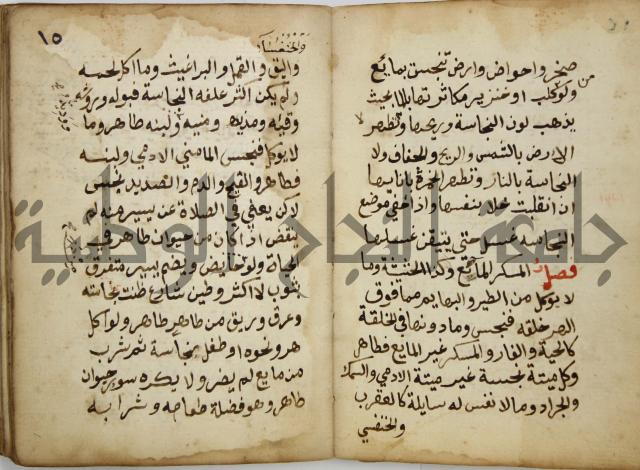 صخر واحواض وارض تنجس بمايع
ولو كلب او خنزير مكاثرتها بالما بحيث
يذهب لون النجاسة وريحها ولا تطهر
الارض بالشمس والريح والجفاف ولا
النجاسة بالنار وتطهر الخمرة بانائها
ان انقلبت خلا بنفسها واذا خفي موضع
النجاسه غسل حتى يتيقن غسلها
فصل المسكر المايع وكذا الحشيشة وما
لا يوكل من الطير والبهايم مما فوق
الهر خلقه فنجس وما دونها في الخلقة
كالحية والفار والمسكر غير المايع فطاهر
وكل ميتة نجسة غير ميتة الادمي والسمك
والجراد وما لا نفس له سايلة كالعقرب
والخنفس
١٥
والخنفساء
والبق والقمل والبراغيث وما اكل لحمه
ولم يكن اكثر علفه النجاسة فبوله وروثه
وقيه ومذيه ومنيه ولبنه طاهر وما
لا يوكل فنجس الا مني الادمي ولبنه
فطاهر والقيح والدم والصديد نجس
لاكن يعفى في الصلاة عن يسير منه لم
ينقض اذا كان من حيوان طاهر في
الحياة ولو حايض ويضم يسير متفرق
بثوب لا اكثر وطين شارع ظنت نجاسته
وعرق وريق من طاهر طاهر ولو اكل
هر ونحوه او طفل نجاسة ثم شرب
من مايع لم يضر ولا يكره سور حيوان
طاهر وهو فضلة طعامه وشرابه
جامعة النجاح الوطنية